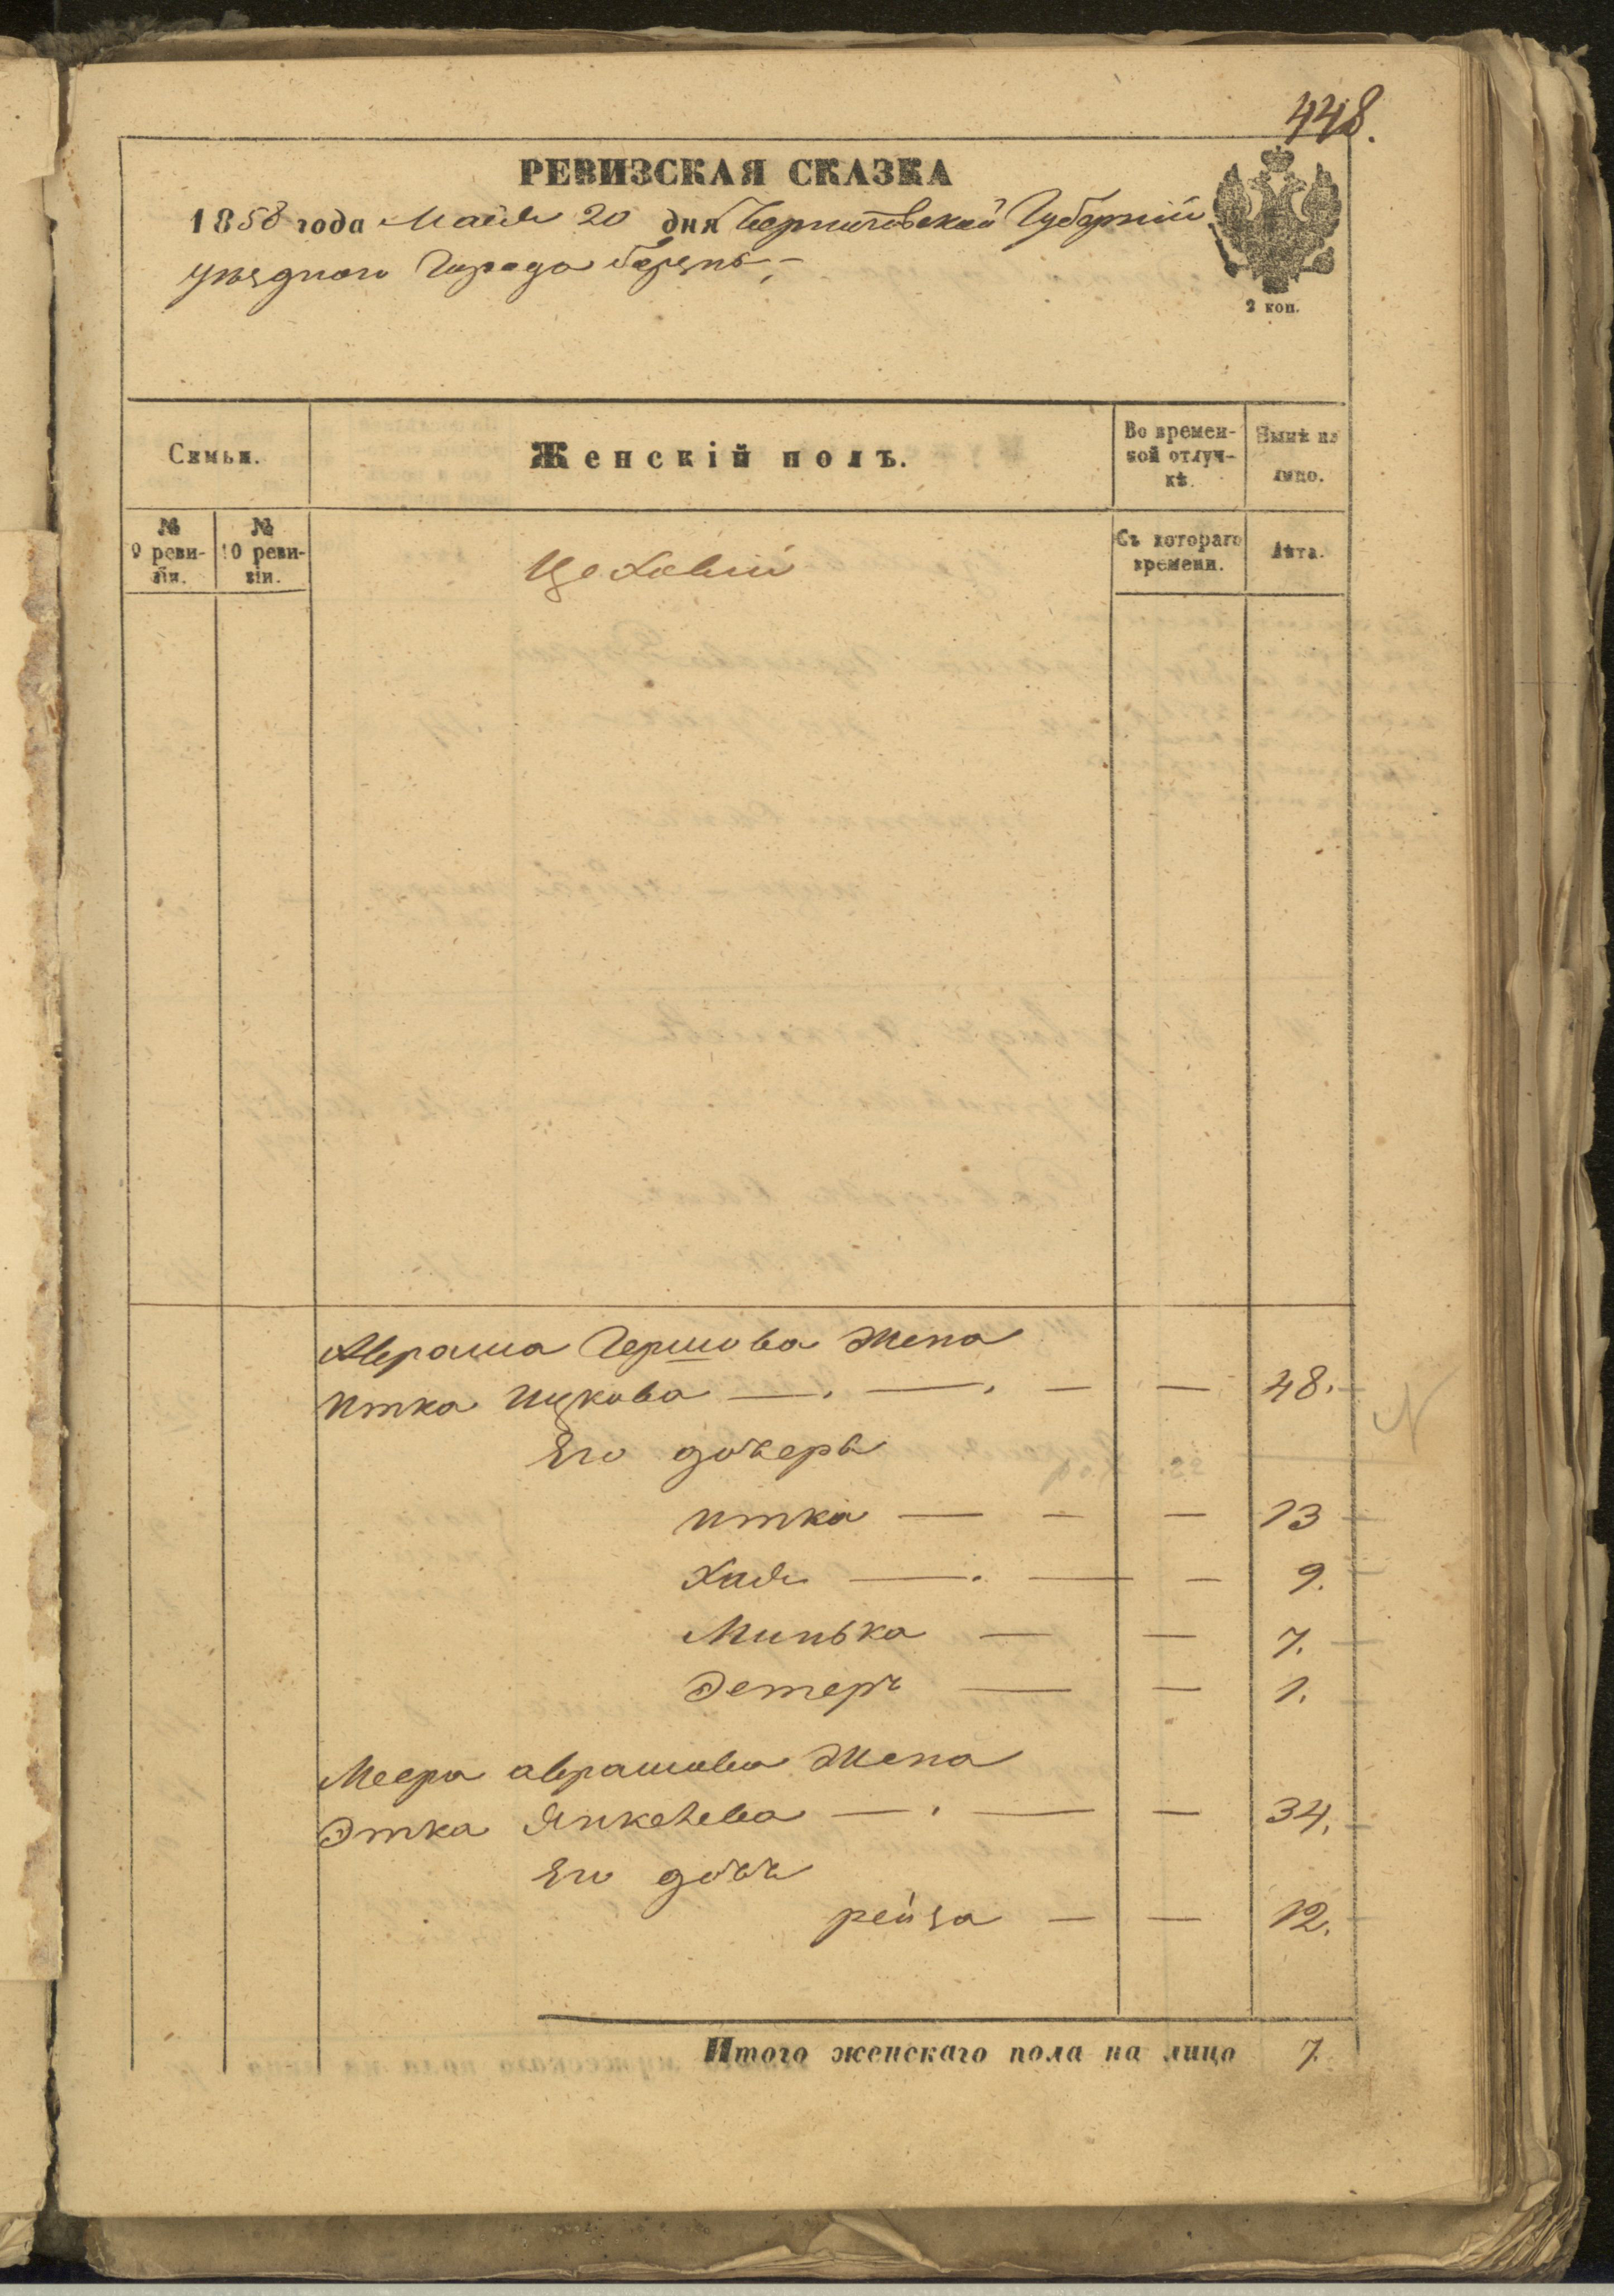 448.
РЕВИЗСКАЯ СКАЗКА
1858 года Майя 20 дня Черниговской Губерніи
уѣзднаго Города Борзны
2 коп.
Семьи.
Женскій полъ.
Во времен-
ной отлуч-
кѣ.
Нынѣ на
лицо.
№
9 реви-
зіи.
№
10 реви-
зіи.
Съ котораго
времени.
Лѣта.
Цеховыи
Аврама Гершова жена
Итка Ицкова — . — . — — 48.
Его дочери
Итка — — — 13
Хая — . — — 9.
Минька — — 7.
Эстеръ — — 1.
Меера Аврамова жена
Этка Янкелева — . — — 34.
Его дочь
рейза — — 12.
Итого женскаго пола на лицо 7.